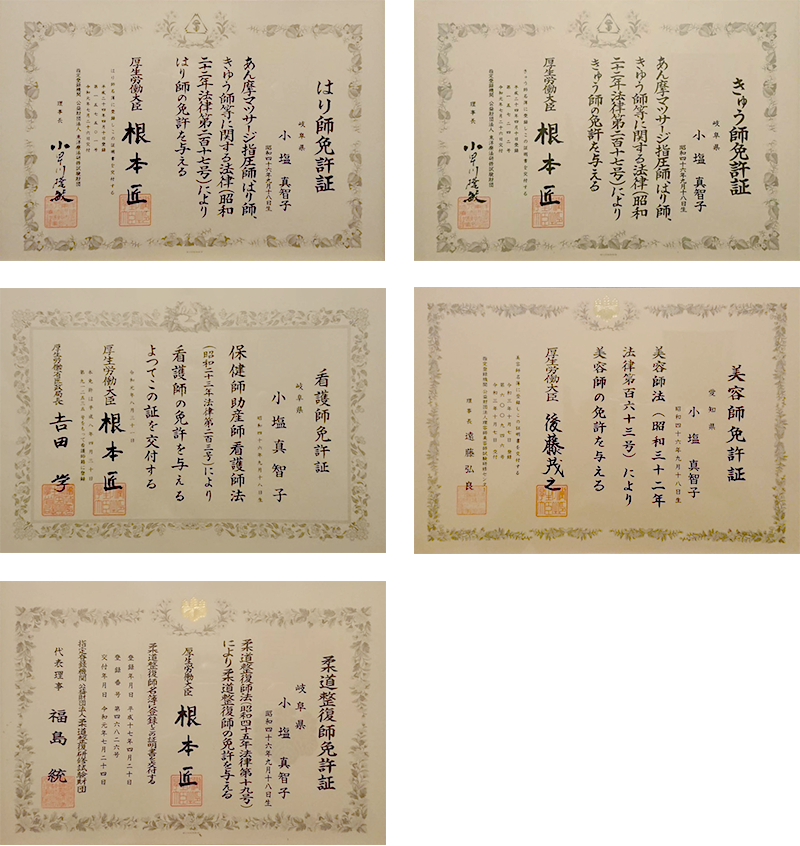 はり師免許証
岐阜県
小塩真智子
昭和四十六年九月十八日生
あん摩マツサージ指圧師、はり師、
きゅう師等に関する法律(昭和
二十二年法律第二百十七号)により
はり師の免許を与える
厚生労働大臣 根本匠
はり師名簿に登録しこの証明書を交付する
指定登録機関 公益財団法人 東洋療法研修試験財団
理事長
きゅう師免許証
岐阜県
小塩真智子
昭和四十六年九月十八日生
あん摩マツサージ指圧師、はり師、
きゅう師等に関する法律(昭和
二十二年法律第二百十七号)により
きゅう師の免許を与える
厚生労働大臣 根本匠
きゅう師名簿に登録しこの証明書を交付する
指定登録機関 公益財団法人 東洋療法研修試験財団
理事長
看護師免許証
岐阜県
小塩真智子
昭和四十六年九月十八日生
保健師助産師看護師法
(昭和二十三年法律第二百三号)により
看護師の免許を与える
よつてこの証を交付する
厚生労働大臣 根本匠
厚生労働省医政局長 吉田学
美容師免許証
愛知県
小塩真智子
昭和四十六年九月十八日生
美容師法(昭和三十二年
法律第百六十三号)により
美容師の免許を与える
厚生労働大臣 後藤茂之
美容師名簿に登録しこの証明書を交付する
理事長 遠藤弘良
柔道整復師免許証
岐阜県
小塩真智子
昭和四十六年九月十八日生
柔道整復師法(昭和四十五年法律第十九号)
により柔道整復師の免許を与える
厚生労働大臣 根本匠
柔道整復師名簿に登録しこの証明書を交付する
登録年月日 平成十七年四月二十日
登録番号 第四六八二六号
交付年月日 令和元年七月二十四日
指定登録機関 公益財団法人 柔道整復研修試験財団
代表理事 福島統